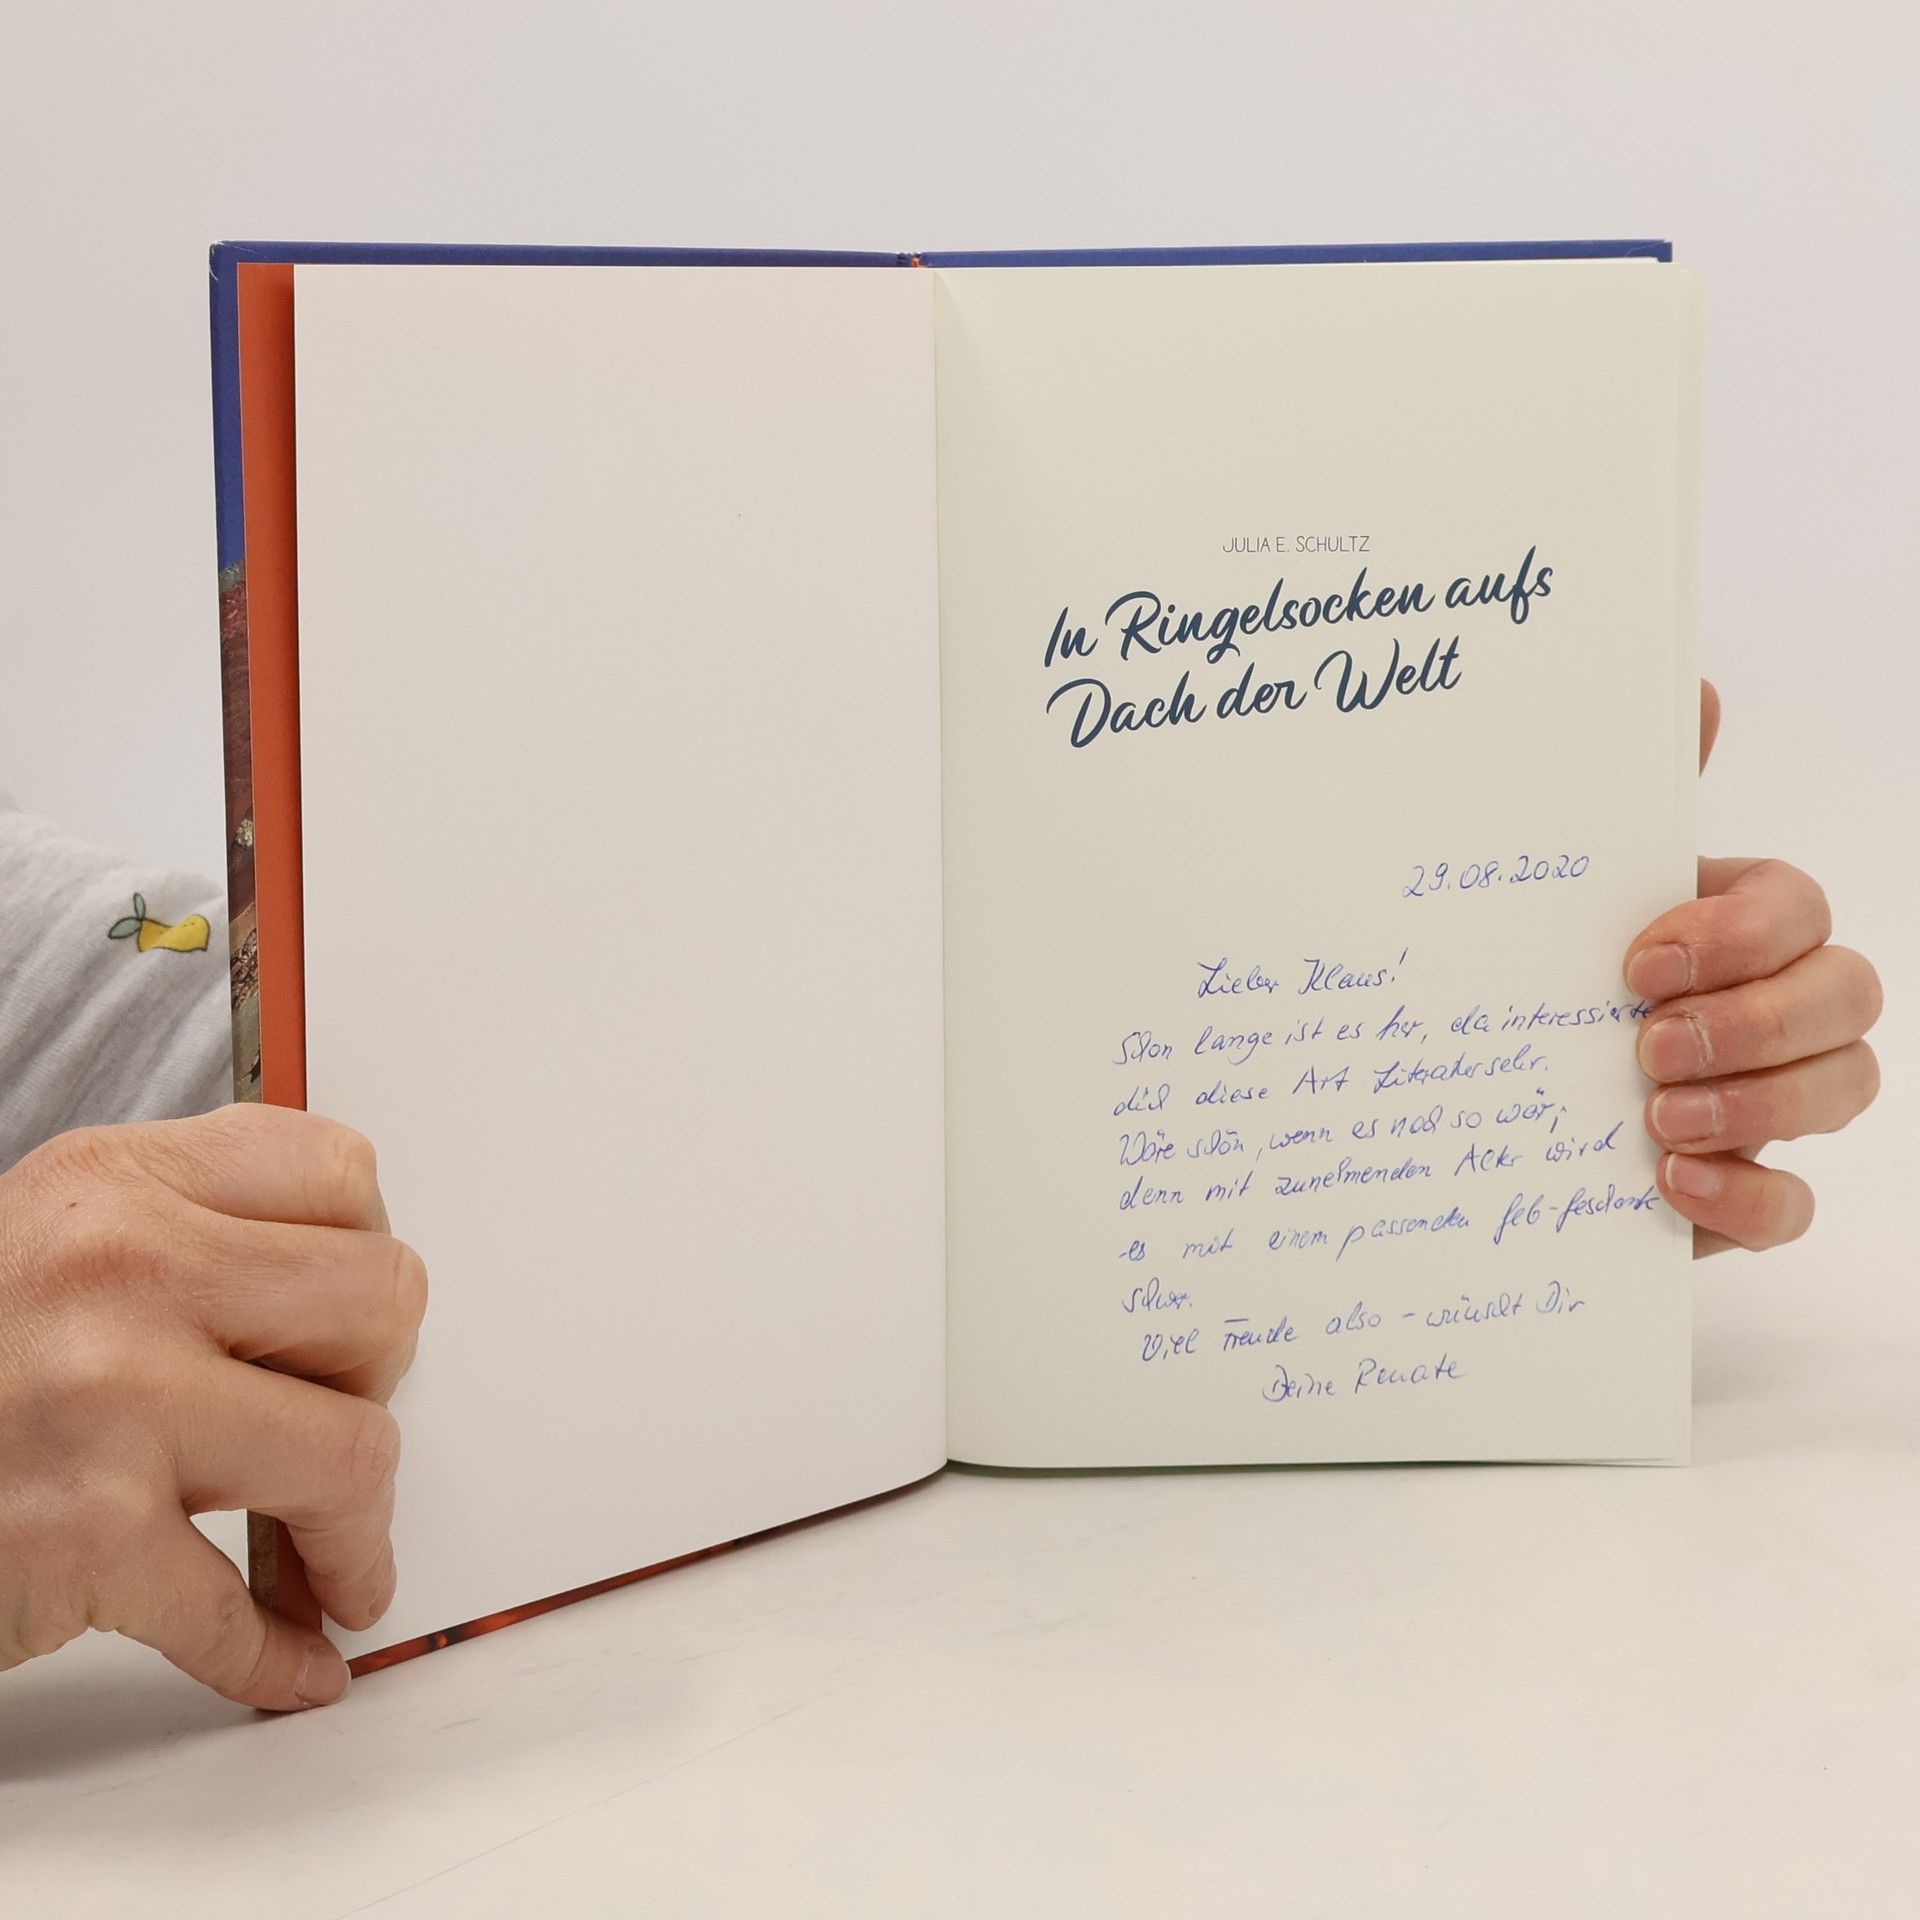 JULIA E. SCHULTZ
In Ringelsocken aufs
Dach der Welt
29.08.2020
Lieber Klaus!
Schon lange ist es her, da interessierte
dich diese Art Literatur sehr.
Wäre schön, wenn es noch so wär;
denn mit zunehmenden Alter wird
es mit einem passenden Geb-Geschenk
schwer.
Viel Freude also - wünscht Dir
Deine Renate